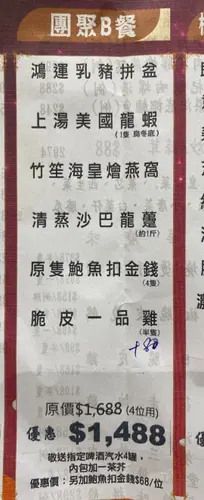 團聚B餐
鴻運乳豬拼盆
上湯美國龍蝦
(1隻 烏冬底)
竹笙海皇燴燕窩
清蒸沙巴龍躉
(約1斤)
原隻鮑魚扣金錢
(4隻)
脆皮一品雞
(半隻)
原價$1,688 (4位用)
優惠 $1,488
敬送指定啤酒汽水4罐,
內包加一茶芥
優惠：另加鮑魚扣金錢$68/位